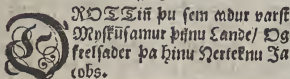 DROTTiñ þu sem adur varst
Myskūsamur þijnu Lande/ Og
frelsader þa hinu Herteknu Ja
cobs.